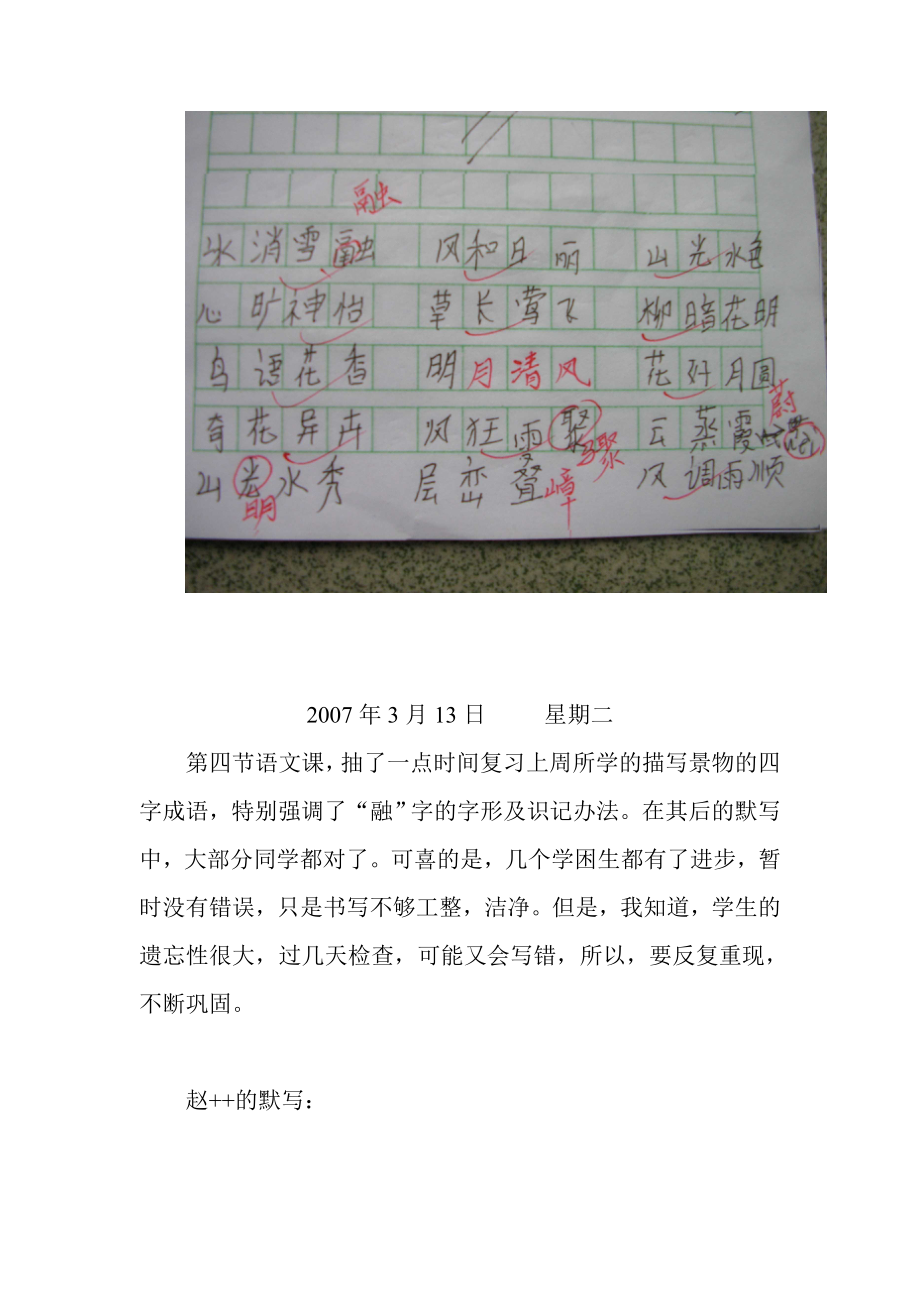 融
冰消雪融 风和日丽 山光水色
心旷神怡 草长莺飞 柳暗花明
鸟语花香 明月清风 花好月圆
蔚
奇花异卉 风狂雨聚 云蒸霞
骤
山光水秀 层峦叠嶂 风调雨顺
明
2007 年 3 月 13 日 星期二
第四节语文课，抽了一点时间复习上周所学的描写景物的四
字成语，特别强调了“融”字的字形及识记办法。在其后的默写
中，大部分同学都对了。可喜的是，几个学困生都有了进步，暂
时没有错误，只是书写不够工整，洁净。但是，我知道，学生的
遗忘性很大，过几天检查，可能又会写错，所以，要反复重现，
不断巩固。
赵++的默写：